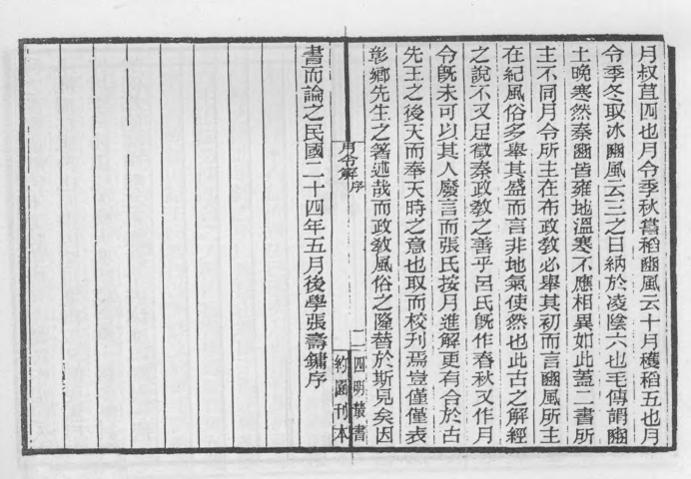 月叔苴四也月令季秋嘗稻豳風云十月穫稻五也月
令季冬取冰豳風云三之日納於凌陰六也毛傳謂豳
土晚寒然秦豳皆雍地溫寒不應相異如此蓋二書所
主不同月令所主在布政教必舉其初而言豳風所主
在紀風俗多舉其盛而言非地氣使然也此古之解經
之說不又足徵秦政教之善乎呂氏旣作春秋又作月
令旣未可以其人廢言而張氏按月進解更有合於古
先王之後天而奉天時之意也取而校刊焉豈僅僅表
彰鄉先生之著述哉而政教風俗之隆替於斯見矣因
月令解 序
二
四明叢書
約園刊本
書而論之民國二十四年五月後學張壽鏞序